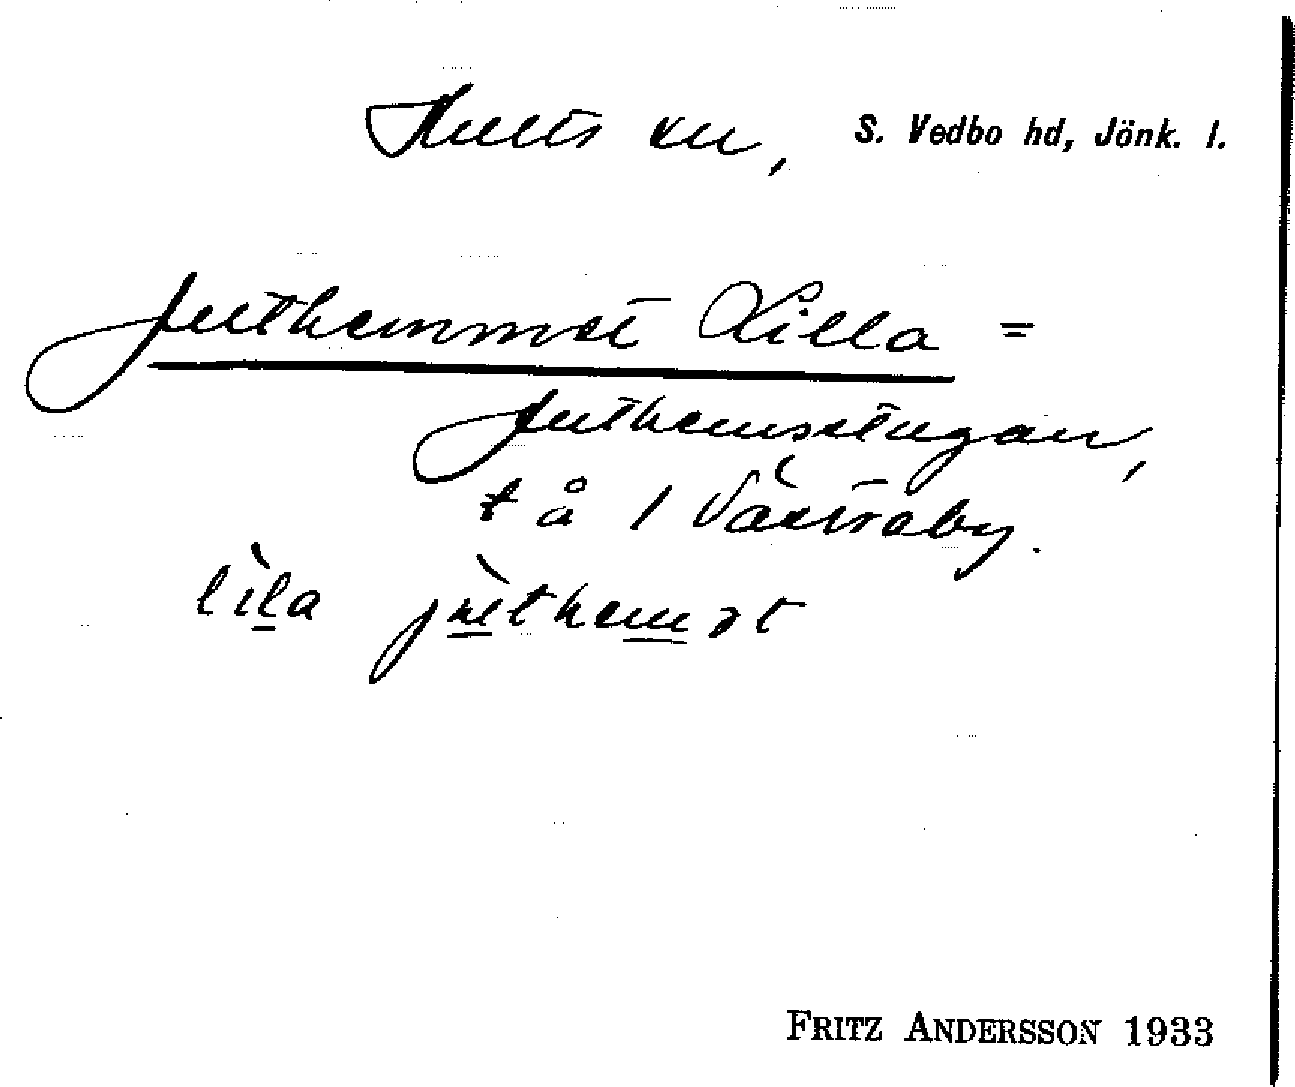 Hults sn, S. Vedbo hd, Jönk. l.
Juthemmet Lilla =
Juthemsstugan,
t å 1 Västraby.
lìla jùthemət
FRITZ ANDERSSON 1933